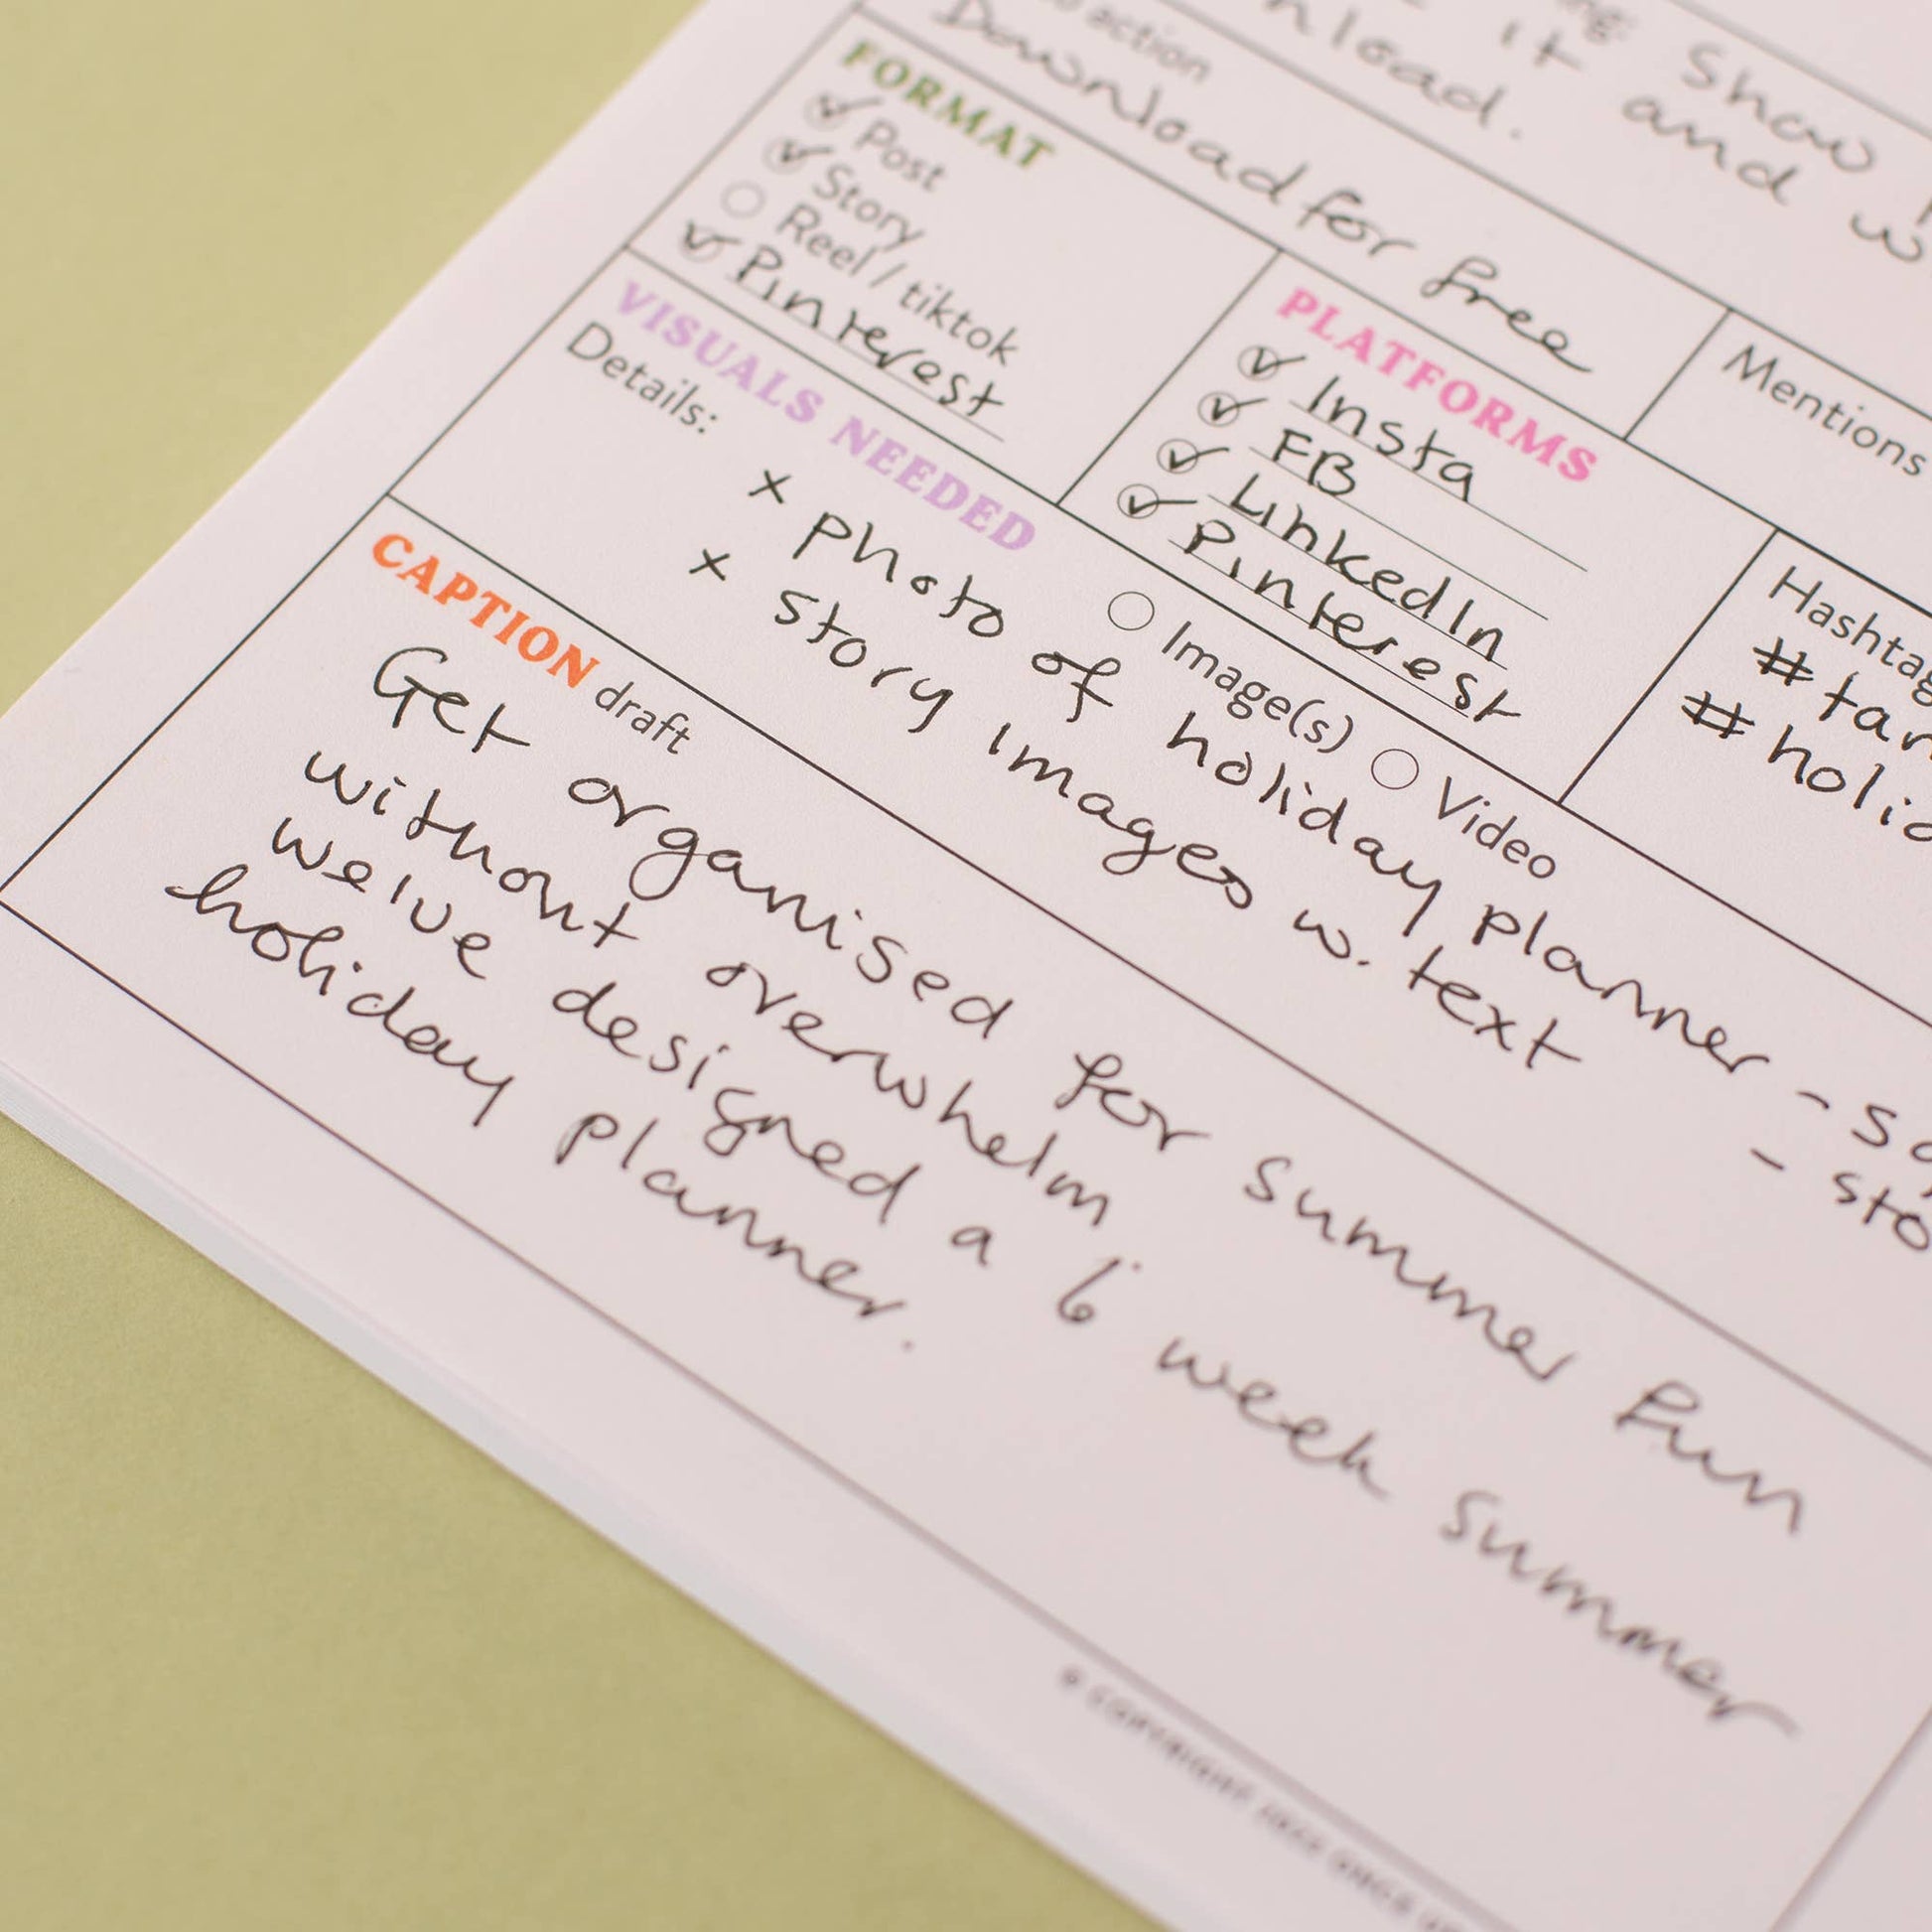 it Show
nload. and
action
Download for free
FORMAT
Post
Story
Reel / tiktok
Pinterest
PLATFORMS
Insta
FB
LinkedIn
Pinterest
Mentions
Hashtag
#
# holid
VISUALS NEEDED
Image(s) Video
Details:
x photo of holiday planner -
x story images w. text - sto
CAPTION draft
Get organised for summer fun
without overwhelm
we've designed a 6 week summer
holiday planner.
© COPYRIGHT